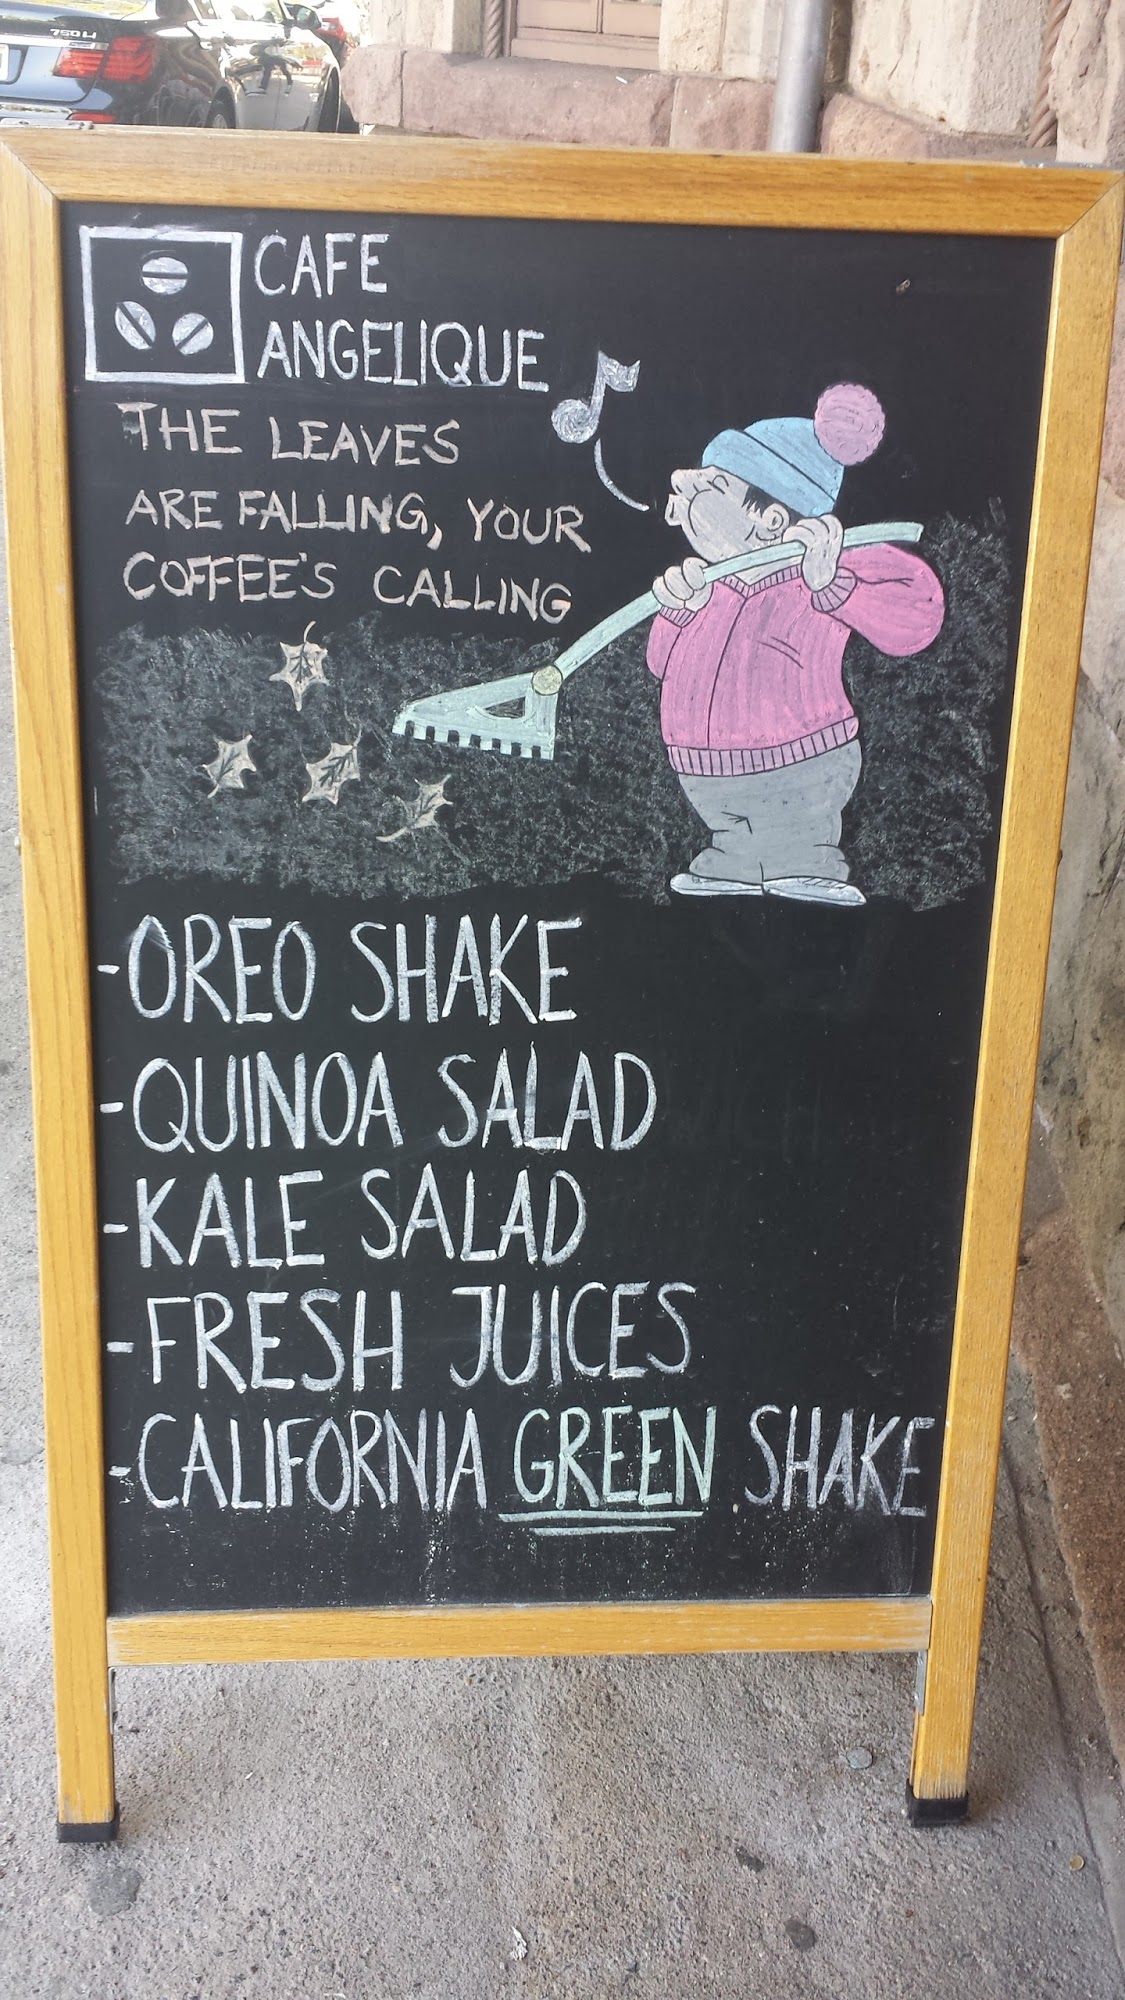 750Li
CAFE
ANGELIQUE
THE LEAVES
ARE FALLING, YOUR
COFFEE'S CALLING
-OREO SHAKE
-QUINOA SALAD
-KALE SALAD
-FRESH JUICES
-CALIFORNIA GREEN SHAKE